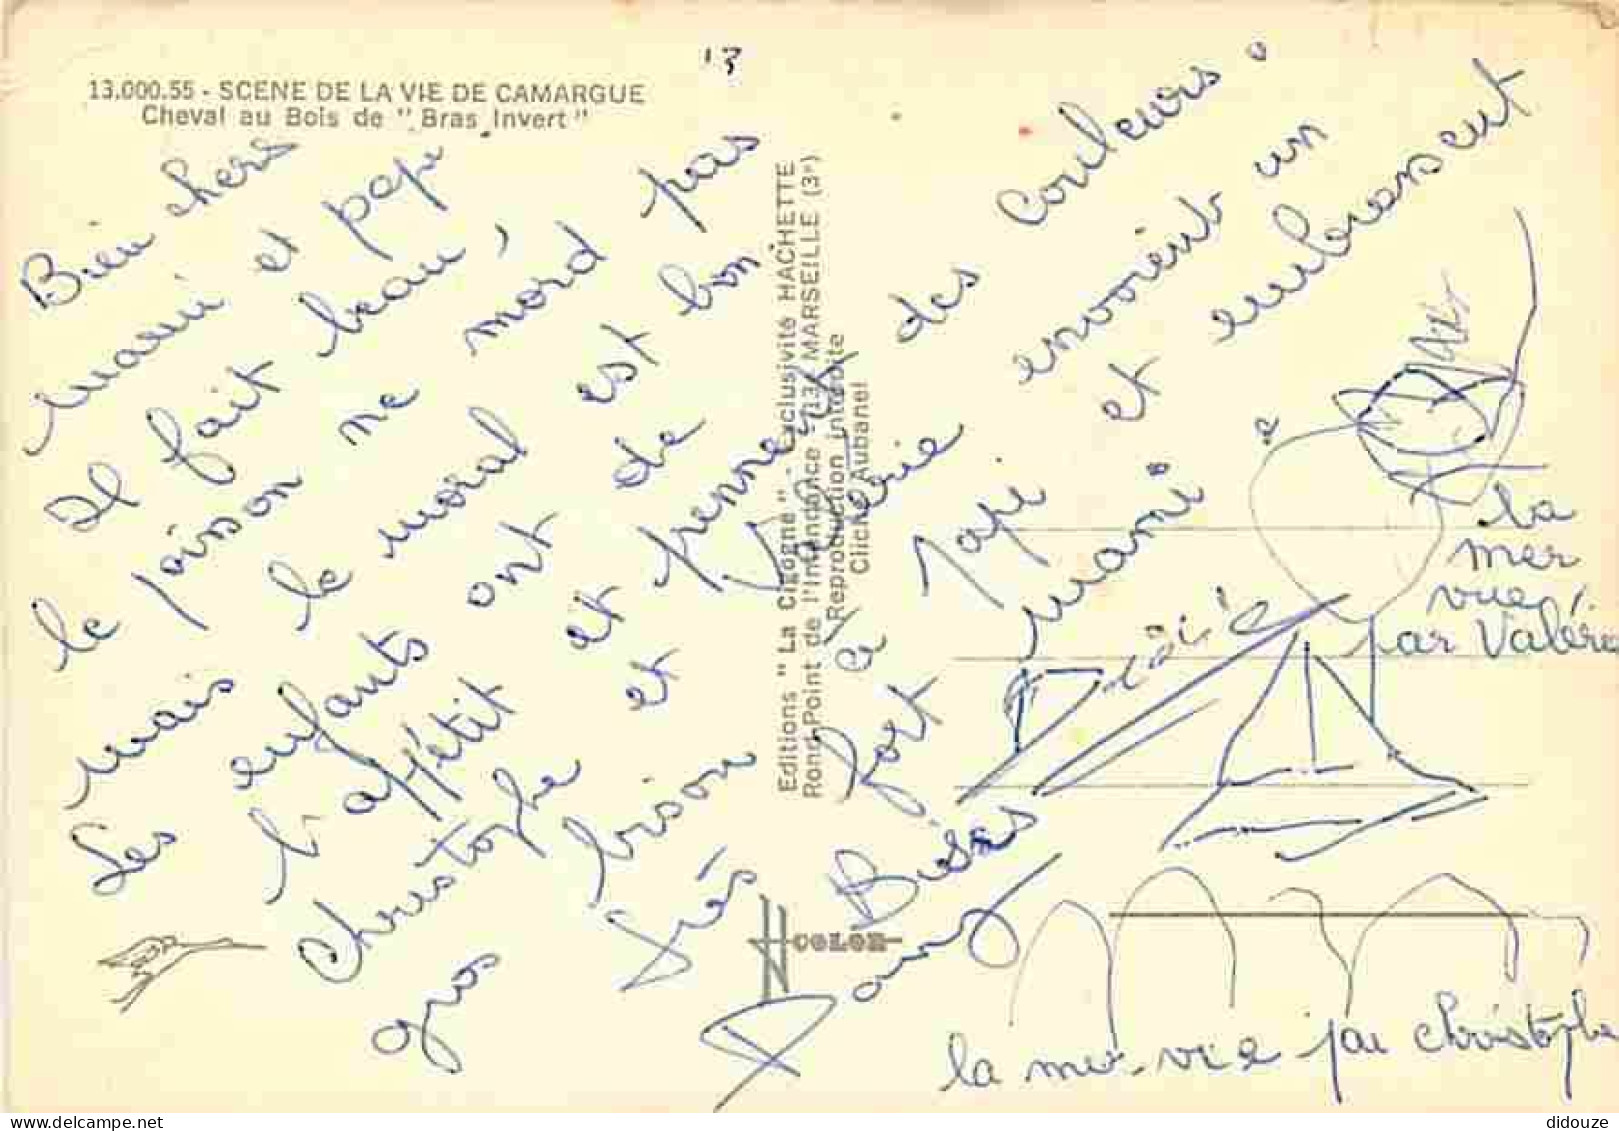 13
13.000.55 - SCENE DE LA VIE DE CAMARGUE
Cheval au Bois de "Bras Invert"
Bien chers
mami et papi
Il fait beau,
le poisson ne mord pas
mais le moral est bon
Les enfants ont de
l'appétit et prennent des couleurs.
Christophe et Valérie envoient un
gros bison à papi et
très fort mami et embrassent
Bises
Dany
Editions "La Cigogne" - Exclusivité HACHETTE
Rond-Point de l'Intendance - 13 MARSEILLE (3e)
Reproduction interdite
Cliché Aubanel
COLOR
la
mer
vue
par Valérie
la mer vue par Christophe
didouze
delcampe.net